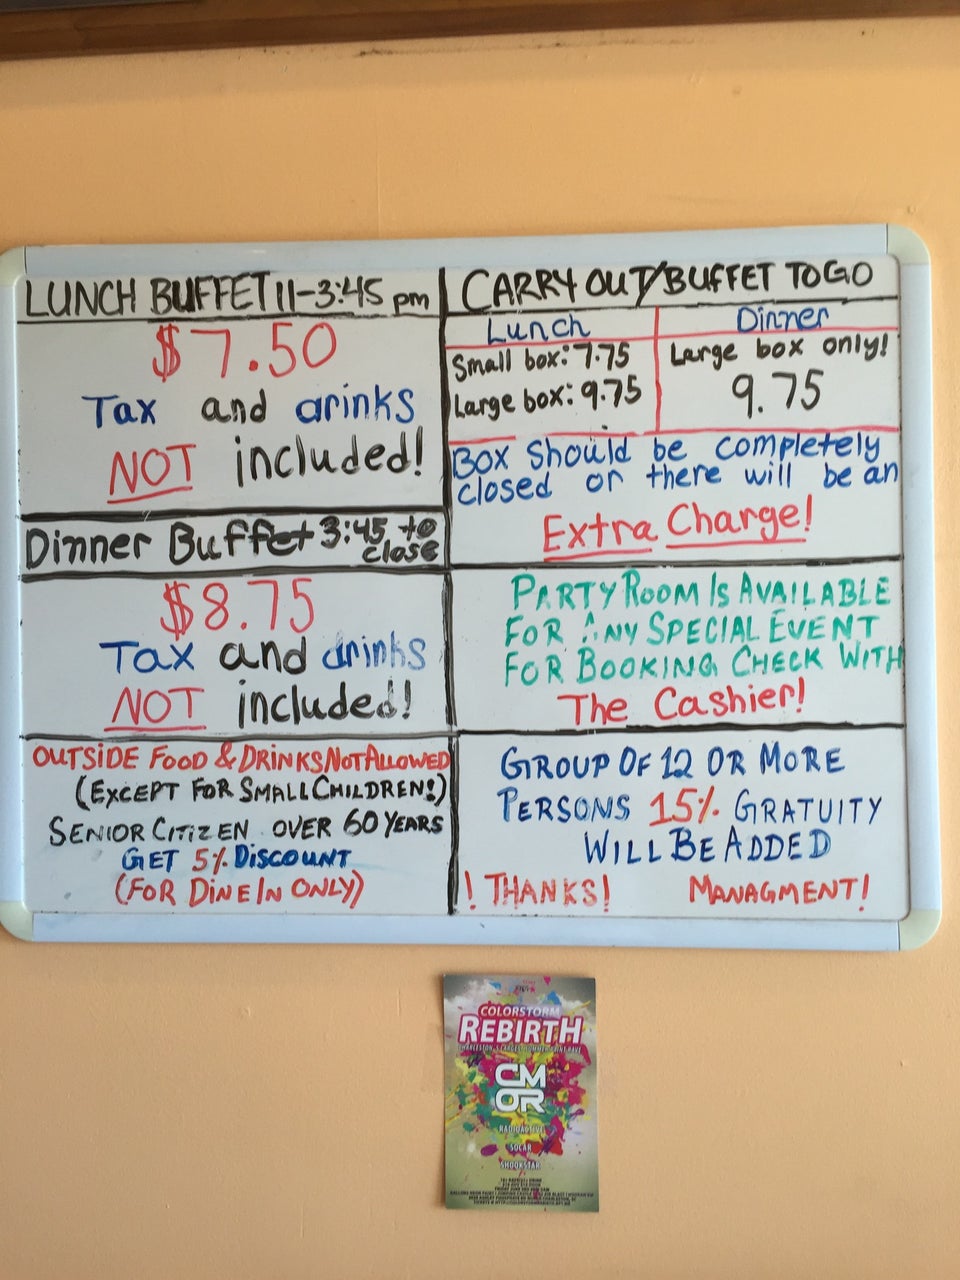 LUNCH BUFFET 11-3:45 pm
$7.50
Tax and drinks
NOT included!
Dinner Buffet 3:45 to
close
$8.75
Tax and drinks
NOT included!
OUTSIDE FOOD & DRINKS NOT ALLOWED
(EXCEPT FOR SMALL CHILDREN!)
SENIOR CITIZEN OVER 60 YEARS
GET 5% DISCOUNT
(FOR DINE IN ONLY)
CARRY OUT/BUFFET TO GO
Lunch
Small box: 7.75
Large box: 9.75
Dinner
Large box only!
9.75
Box Should be completely
closed or there will be an
Extra Charge!
PARTY ROOM IS AVAILABLE
FOR ANY SPECIAL EVENT
FOR BOOKING CHECK WITH
The Cashier!
GROUP OF 12 OR MORE
PERSONS 15% GRATUITY
WILL BE ADDED
! THANKS! MANAGMENT!
COLORSTORM
REBIRTH
CM
OR
RADIOACTIVE
SOCAR
SHOOKSTAR